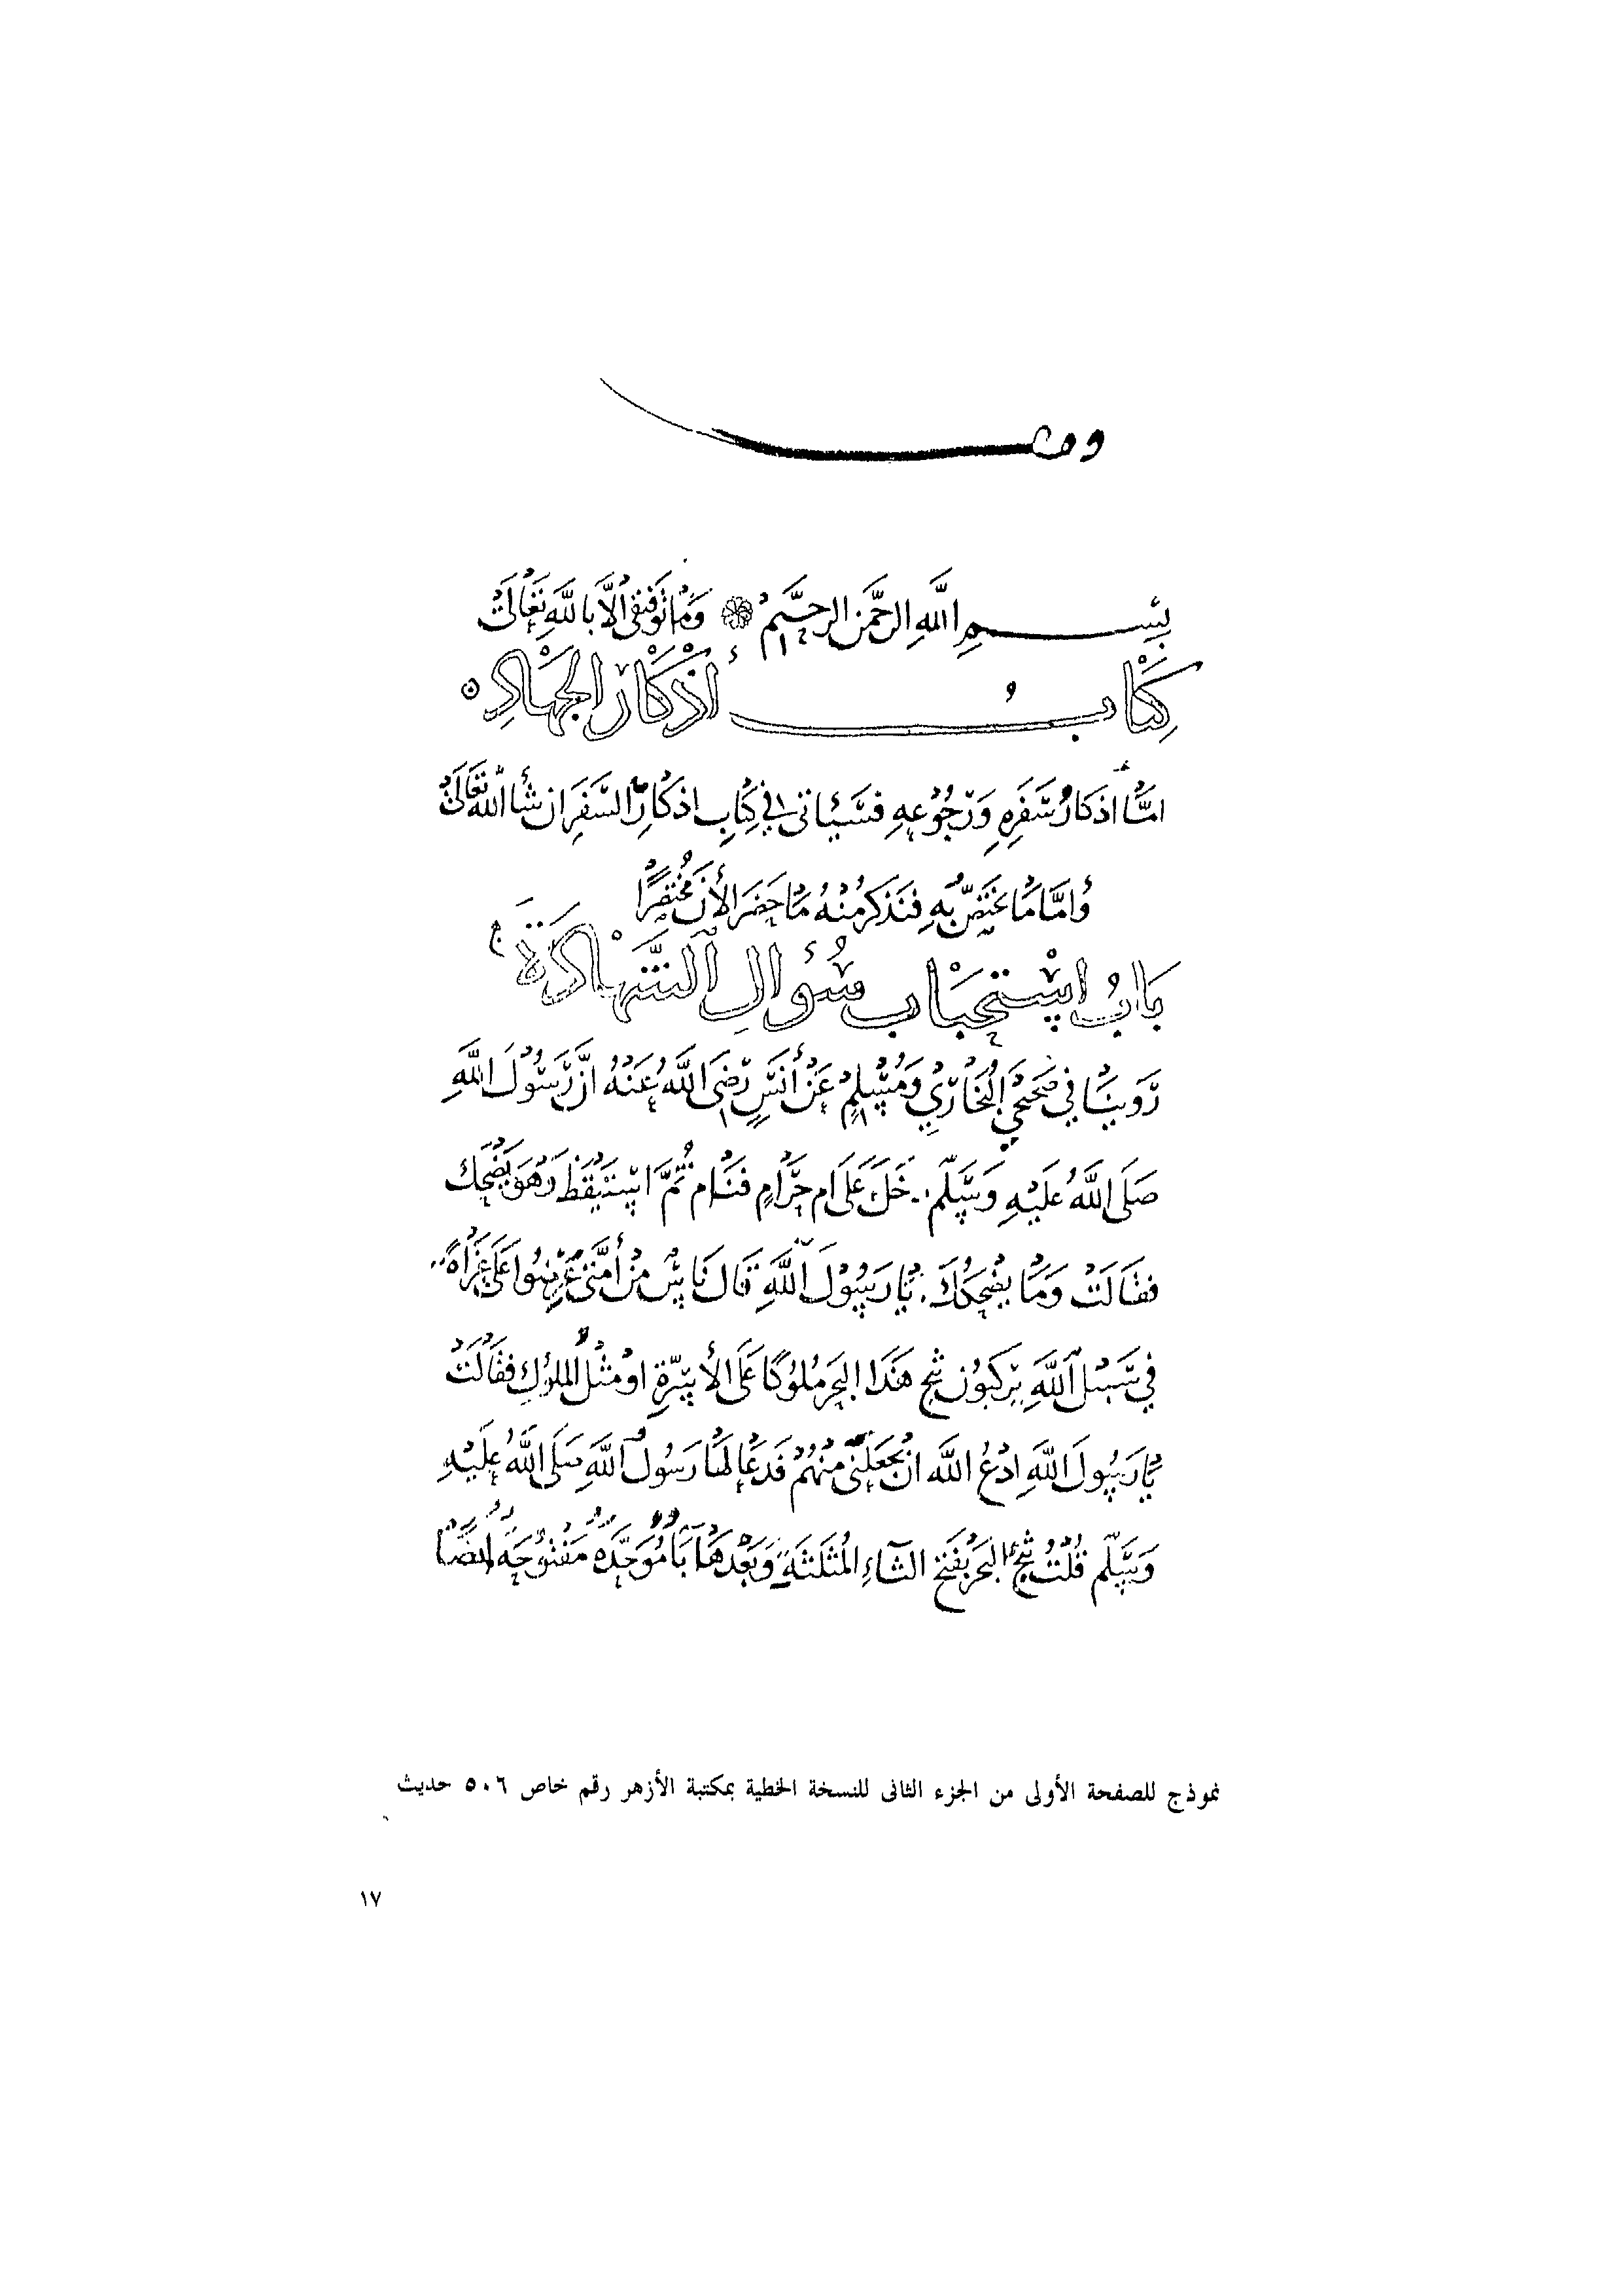 وقف
بِسْمِ اللَّهِ الرَّحْمَنِ الرَّحِيمِ وَمَا تَوْفِيقِي الَّا بِاللَّهِ تَعَالَى
كِتَابُ أَذْكَارِ الجِهَادِ
امَّا اذكَارُ سَفَرِهِ وَرُجُوْعِهِ فسَيَاتى فِي كِتَابِ اذكَارِ السَّفَرِ ان شَأَ اللَّه تَعَالَى
وَأمَّا مَا يَخْتَصُّ بِهِ فنَذكرُ مِنْهُ مَا حَضَرَ الأنَ مُخْتَصِرًا
بَابُ اسْتِحْبَابِ سُؤَالِ الشَّهَادَةِ
رَوَينَا في صَحِيْحَيِ البُخَارِيِ وَمُسْلِمٍ عَنْ أنَسٍ رَضِيَ اللَّهُ عَنْهُ انَّ رَسُوْلَ اللَّهِ
صَلَى اللَّهُ عَلَيْهِ وَسَلّم دَخَلَ عَلَى ام حَرَامٍ فنَام ثُمَّ اسْتَيْقَظَ وَهوَ يَضْحَك
فقَالَتْ وَمَا يُضْحِكُكَ يَا رَسُوْلَ اللَّهِ قَال نَاسٌ مِنْ أمَّتى عُرِضُوا عَلَىَّ غُزَاةً
فِي سَبيْل اللَّهِ يَركَبُوْن ثَبَج هَذَا البَحْرِ مُلُوْكًا عَلَى الأسِرَّةِ اوْ مثْلُ الملُوْكِ فقَالَتْ
يَا رَسُولَ اللَّهِ ادْعُ اللَّه انْ يجْعَلَنى مِنْهُمْ فَدَعَا لَهَا رَسُوْلُ اللَّهِ صَلَى اللَّهُ عَلَيْهِ
وَسَلّم قُلْتُ ثَبَجُ البَحْرِ بفَتْحِ الثَاءِ المُثَلثَةِ وَبَعْدهَا بَا مُوَحَّدَةٌ مَفْتُوْحَةٌ ايضًا
نموذج للصفحة الأولى من الجزء الثانى للنسخة الخطية بمكتبة الأزهر رقم خاص ٥٠٦ حديث
١٧